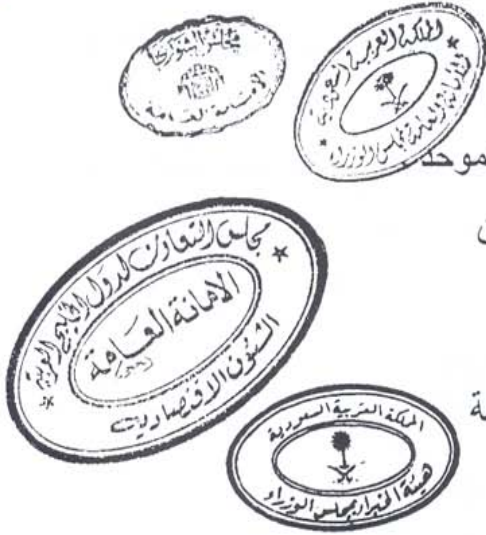 مجلس الشورى
الأمانة العامة
المملكة العربية السعودية
الأمانة العامة لمجلس الوزراء
موحد
مجلس التعاون لدول الخليج العربية
الأمانة العامة
الشئون الاقتصادية
المملكة العربية السعودية
هيئة الخبراء بمجلس الوزراء